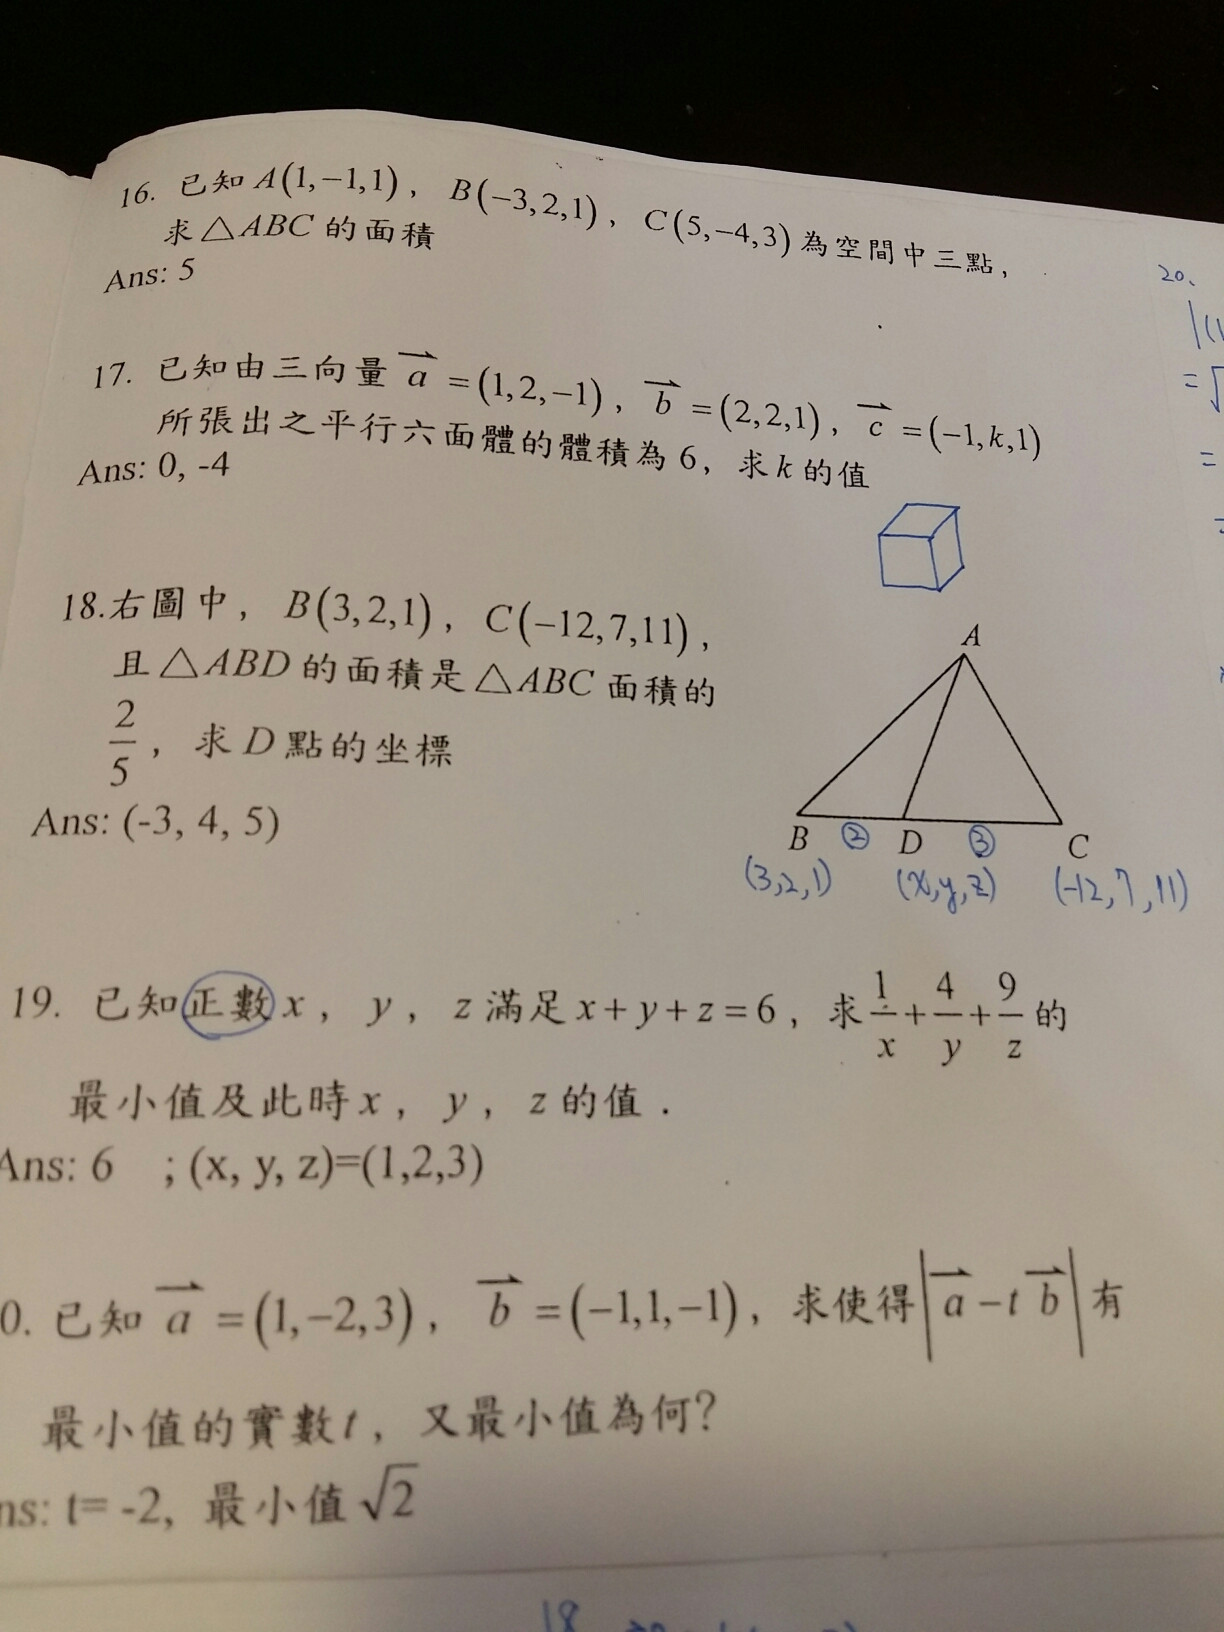 16. 已知 A(1,−1,1)，B(−3,2,1)，C(5,−4,3)為空間中三點，
求△ABC 的面積
Ans: 5
17. 已知由三向量 a⇀ =(1,2,−1)，b⇀ =(2,2,1)，c⇀ =(−1,k,1)
所張出之平行六面體的體積為 6，求 k 的值
Ans: 0, -4
18.右圖中，B(3,2,1)，C(−12,7,11)，
且△ABD 的面積是△ABC 面積的
2/5，求 D 點的坐標
Ans: (-3, 4, 5)
A
B ② D ③ C
(3,2,1) (x,y,z) (-12,7,11)
19. 已知正數 x，y，z 滿足 x+y+z=6，求 1/x + 4/y + 9/z 的
最小值及此時 x，y，z 的值．
Ans: 6 ; (x, y, z)=(1,2,3)
0. 已知 a⇀ =(1,−2,3)，b⇀ =(−1,1,−1)，求使得|a⇀ −t b⇀|有
最小值的實數 t，又最小值為何?
ns: t= -2, 最小值 √2
20、
18